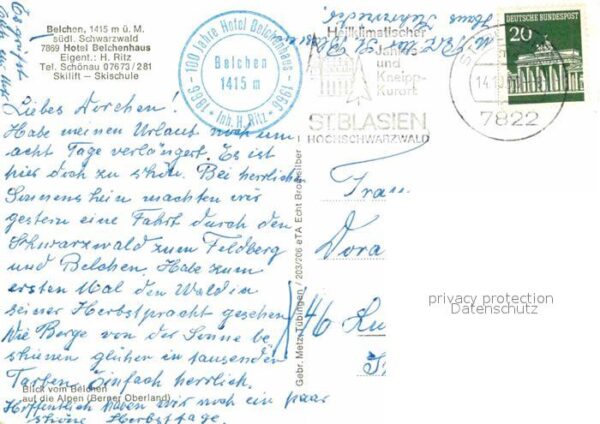 Belchen, 1415 m ü. M.
südl. Schwarzwald
7869 Hotel Belchenhaus
Eigent.: H. Ritz
Tel. Schönau 07673/281
Skilift – Skischule
1866 - 100 Jahre Hotel Belchenhaus - 1966
Belchen
1415 m
• Inh. H. Ritz •
Heilklimatischer
Jahres
und
Kneipp-
Kurort
ST. BLASIEN
HOCHSCHWARZWALD
DEUTSCHE BUNDESPOST
20
14.10
7822
Liebes Dorchen!
Habe meinen Urlaub noch um
acht Tage verlängert. Es ist
hier doch zu schön. Bei herrlichem
Sonnenschein machten wir
gestern eine Fahrt durch den
Schwarzwald zum Feldberg
und Belchen. Habe zum
ersten Mal den Wald in
seiner Herbstpracht gesehen.
Die Berge von der Sonne be-
schienen glühen in tausenden
Farben. Einfach herrlich.
Hoffentlich haben wir noch ein paar
schöne Herbsttage.
Es grüßt
Blick vom Belchen
auf die Alpen (Berner Oberland)
Gebr. Metz, Tübingen / 203/206 eTA Echt Bromsilber
Frau
Dora
46 Lu
privacy protection
Datenschutz